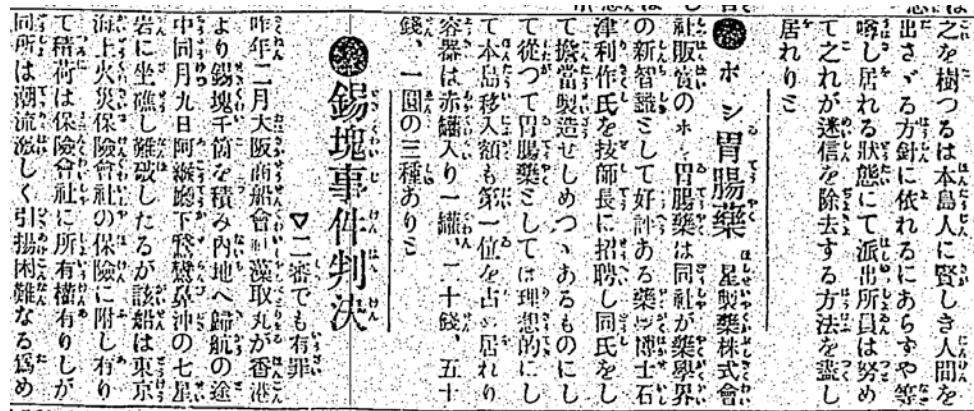 之を樹つるは本島人に賢しき人間を
出さゞる方針に依れるにあらずや等
噂し居れる狀態にて派出所員は努め
て之れが迷信を除去する方法を盡し
居れりミ
●ホシ胃腸藥 星製藥株式會
社販賣のホシ胃腸藥は同社が藥學界
の新智識ミして好評ある藥學博士石
津利作氏を技師長に招聘し同氏をし
て擔當製造せしめつゝあるものにし
て從つて胃腸藥ミしては理想的にし
て本島移入額も第一位を占め居れり
容器は赤罐入り一罐、二十錢、五十
錢、一圓の三種ありミ
●錫塊事件判決
▽二審でも有罪
昨年二月大阪商船會社漢取丸が香港
より錫塊千箇を積み內地へ歸航の途
中同月九日阿緱廳下鵞鑾鼻沖の七星
岩に坐礁し難破したるが該船は東京
海上火災保險會社の保險に附し有り
て積荷は保險會社に所有權有りしが
同所は潮流激しく引揚困難なる爲め